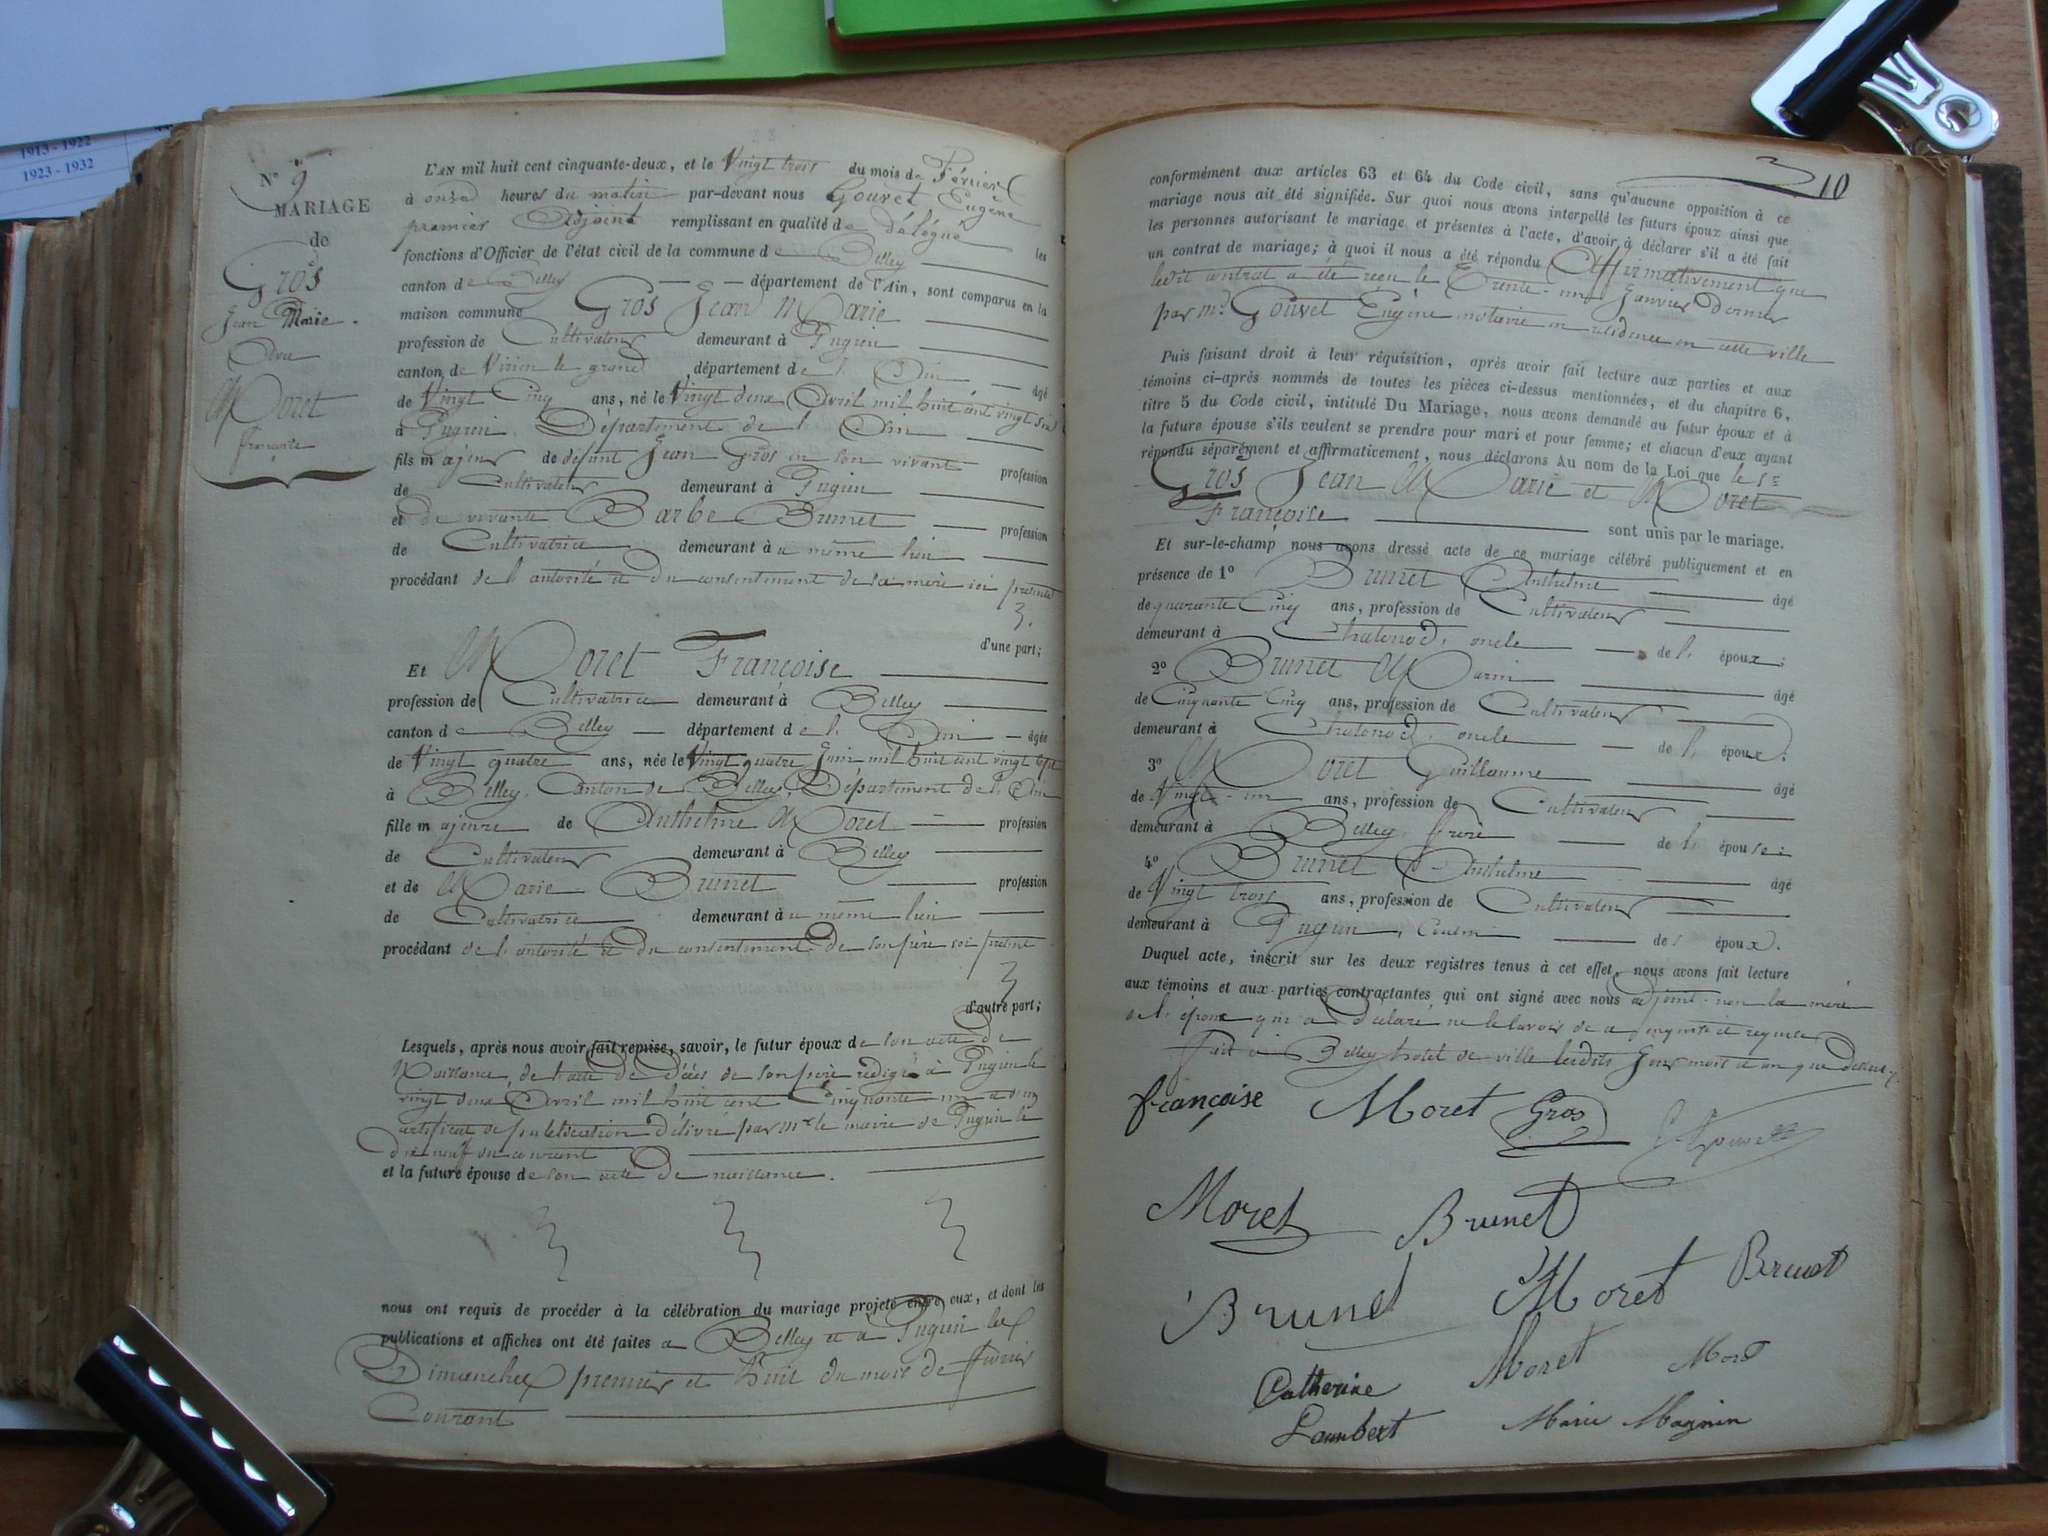 1913 - 1922
1923 - 1932
N° 9
MARIAGE
de
Gros
Jean Marie.
Avec
Moret
françoise
L'AN mil huit cent cinquante-deux, et le Vingt trois du mois de Février
à onze heures du matin par-devant nous Gouvet Eugène
premier Adjoint remplissant en qualité de délégué les
fonctions d'Officier de l'état civil de la commune de Belley
canton de Belley département de l'Ain, sont comparus en la
maison commune Gros Jean Marie
profession de Cultivateur demeurant à Pugieu
canton de Virieu le grand département de l'Ain âgé
de Vingt Cinq ans, né le Vingt deux Avril mil huit cent vingt six
à Pugieu Département de l'Ain
fils majeur de défunt Jean Gros en son vivant profession
de Cultivateur demeurant à Pugieu
et de vivante Barbe Brunet profession
de Cultivatrice demeurant au même lieu
procédant de l'autorité et du consentement de sa mère ici présente
d'une part;
Et Moret Françoise
profession de Cultivatrice demeurant à Belley
canton de Belley département de l'Ain âgée
de Vingt quatre ans, née le Vingt quatre Juin mil huit cent vingt sept
à Belley, Canton de Belley, Département de l'Ain
fille majeure de Anthelme Moret profession
de Cultivateur demeurant à Belley
et de Marie Brunet profession
de Cultivatrice demeurant au même lieu
procédant de l'autorité et du consentement de son père ici présent
d'autre part;
Lesquels, après nous avoir fait remise, savoir, le futur époux de son acte de
Naissance, de l'acte de Décès de son père rédigé à Pugieu le
vingt deux Avril mil huit cent Cinquante un et d'un
certificat de publication délivré par Mr le maire de Pugieu le
dix neuf du courant
et la future épouse de son acte de naissance.
nous ont requis de procéder à la célébration du mariage projeté entre eux, et dont les
publications et affiches ont été faites à Belley et à Pugieu les
Dimanches premier et huit du mois de février
Courant
10
conformément aux articles 63 et 64 du Code civil, sans qu'aucune opposition à ce
mariage nous ait été signifiée. Sur quoi nous avons interpellé les futurs époux ainsi que
les personnes autorisant le mariage et présentes à l'acte, d'avoir à déclarer s'il a été fait
un contrat de mariage; à quoi il nous a été répondu Affirmativement que
ledit contrat a été reçu le Trente-un Janvier Dernier
par Me Gouvet Eugène notaire en résidence en cette ville
Puis faisant droit à leur réquisition, après avoir fait lecture aux parties et aux
témoins ci-après nommés de toutes les pièces ci-dessus mentionnées, et du chapitre 6,
titre 5 du Code civil, intitulé Du Mariage, nous avons demandé au futur époux et à
la future épouse s'ils veulent se prendre pour mari et pour femme; et chacun d'eux ayant
répondu séparément et affirmativement, nous déclarons Au nom de la Loi que le Sr
Gros Jean Marie et Moret
Françoise sont unis par le mariage.
Et sur-le-champ nous avons dressé acte de ce mariage célébré publiquement et en
présence de 1° Brunet Anthelme âgé
de quarante Cinq ans, profession de Cultivateur
demeurant à Chatonod, oncle de l'époux;
2° Brunet Marin âgé
de Cinquante Cinq ans, profession de Cultivateur
demeurant à Chatonod, oncle de l'époux;
3° Moret Guillaume âgé
de Vingt-un ans, profession de Cultivateur
demeurant à Belley, frère de l'épouse;
4° Brunet Anthelme âgé
de Vingt trois ans, profession de Cultivateur
demeurant à Pugieu, Cousin de l'époux.
Duquel acte, inscrit sur les deux registres tenus à cet effet, nous avons fait lecture
aux témoins et aux parties contractantes, qui ont signé avec nous adjoint non la mère
de l'époux qui a Déclaré ne le savoir de ce enquise et requise
fait à Belley hotel de ville lesdits Jour mois et an que dessus.
françoise Moret Gros
Moret Brunet
Brunet Moret Brunet
Catherine Moret Moret
Lambert Marie Magnin